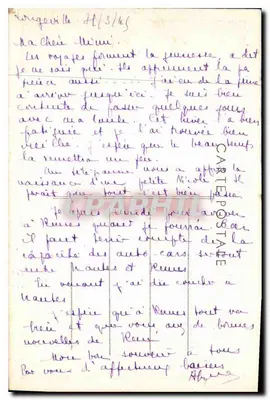 Longeville 21/3/45
Ma Chère Mimi
Les voyages forment la jeunesse, a dit
je ne sais qui. Ils apprennent la
aussi j'ai eu de la peine
à arriver jusqu'ici. Je suis bien
contente de passer quelques jours
avec ma tante. Cet hiver l'a bien
fatiguée et je l'ai trouvée bien
vieillie. J'espère que le beau temps
la remettra un peu.
nous a appris la
naissance d'une petite Nicole. Il
paraît que tout s'est bien passé
à Rennes quand je pourrai car
il faut tenir compte de la
capacité des autocars surtout
entre Nantes et Rennes
En venant j'ai dû coucher à
Nantes
J'espère que à Rennes tout va
bien et que vous avez de bonnes
nouvelles de
Mon bon souvenir à tous
Pour vous d'affectueux baisers
CARTE POSTALE